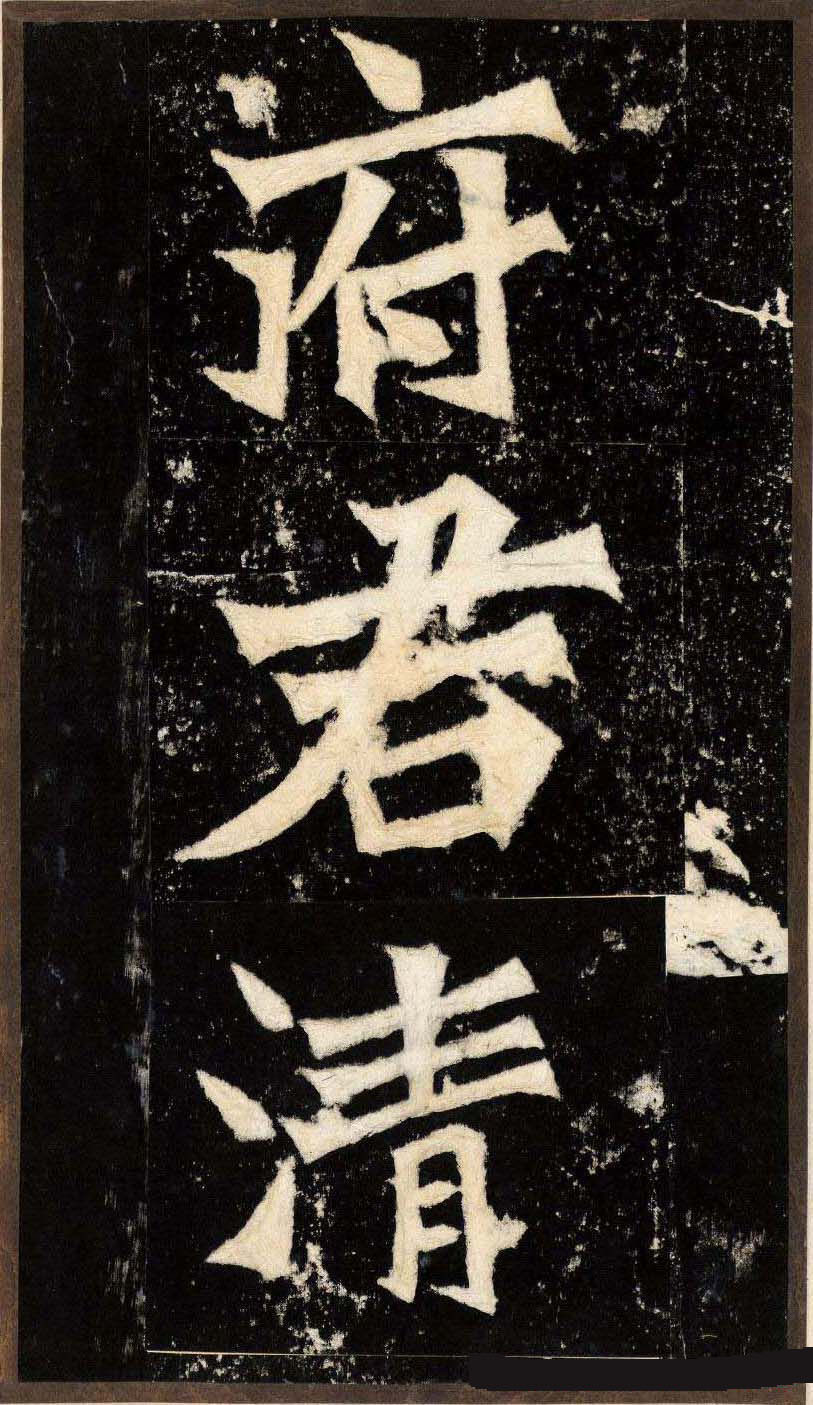 府君清